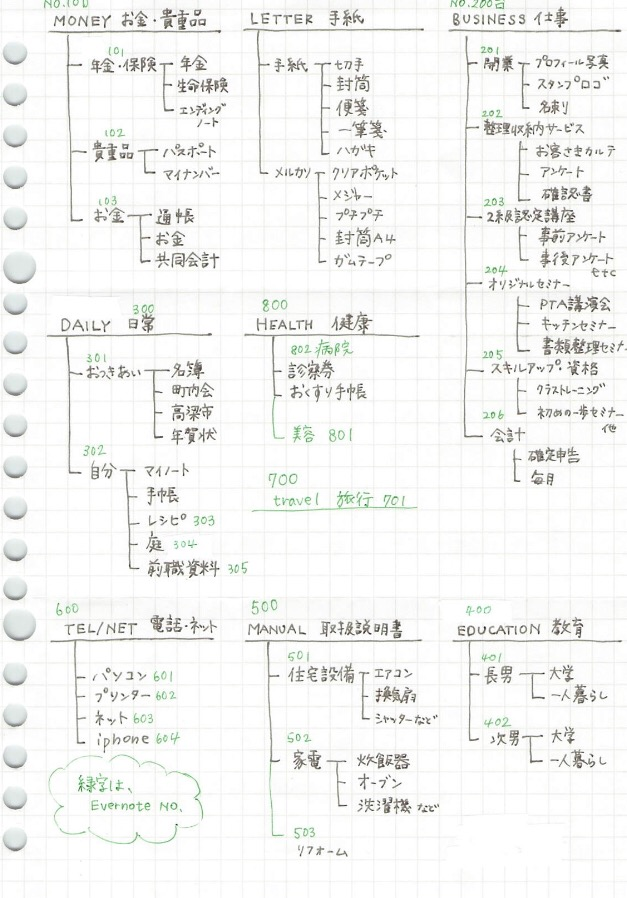 NO.100
MONEY お金・貴重品
101
年金・保険 年金
生命保険
エンディング
ノート
102
貴重品 パスポート
マイナンバー
103
お金 通帳
お金
共同会計
LETTER 手紙
手紙 切手
封筒
便箋
一筆箋
ハガキ
メルカリ クリアポケット
メジャー
プチプチ
封筒A4
ガムテープ
NO.200台
BUSINESS 仕事
201
開業 プロフィール写真
スタンプロゴ
名刺
202
整理収納サービス
お客さまカルテ
アンケート
確認書
203
2級認定講座
事前アンケート
事後アンケート
etc
204
オリジナルセミナー
PTA講演会
キッチンセミナー
書類整理セミナ
205
スキルアップ 資格
クラストレーニング
初めの一歩セミナー
他
206
会計
確定申告
毎月
300
DAILY 日常
301
おつきあい 名簿
町内会
高梁市
年賀状
302
自分 マイノート
手帳
レシピ 303
庭 304
前職資料 305
800
HEALTH 健康
802 病院
診察券
おくすり手帳
美容 801
700
travel 旅行 701
600
TEL/NET 電話・ネット
パソコン 601
プリンター 602
ネット 603
iphone 604
緑字は、
Evernote NO.
500
MANUAL 取扱説明書
501
住宅設備 エアコン
換気扇
シャッターなど
502
家電 炊飯器
オーブン
洗濯機 など
503
リフォーム
400
EDUCATION 教育
401
長男 大学
一人暮らし
402
次男 大学
一人暮らし